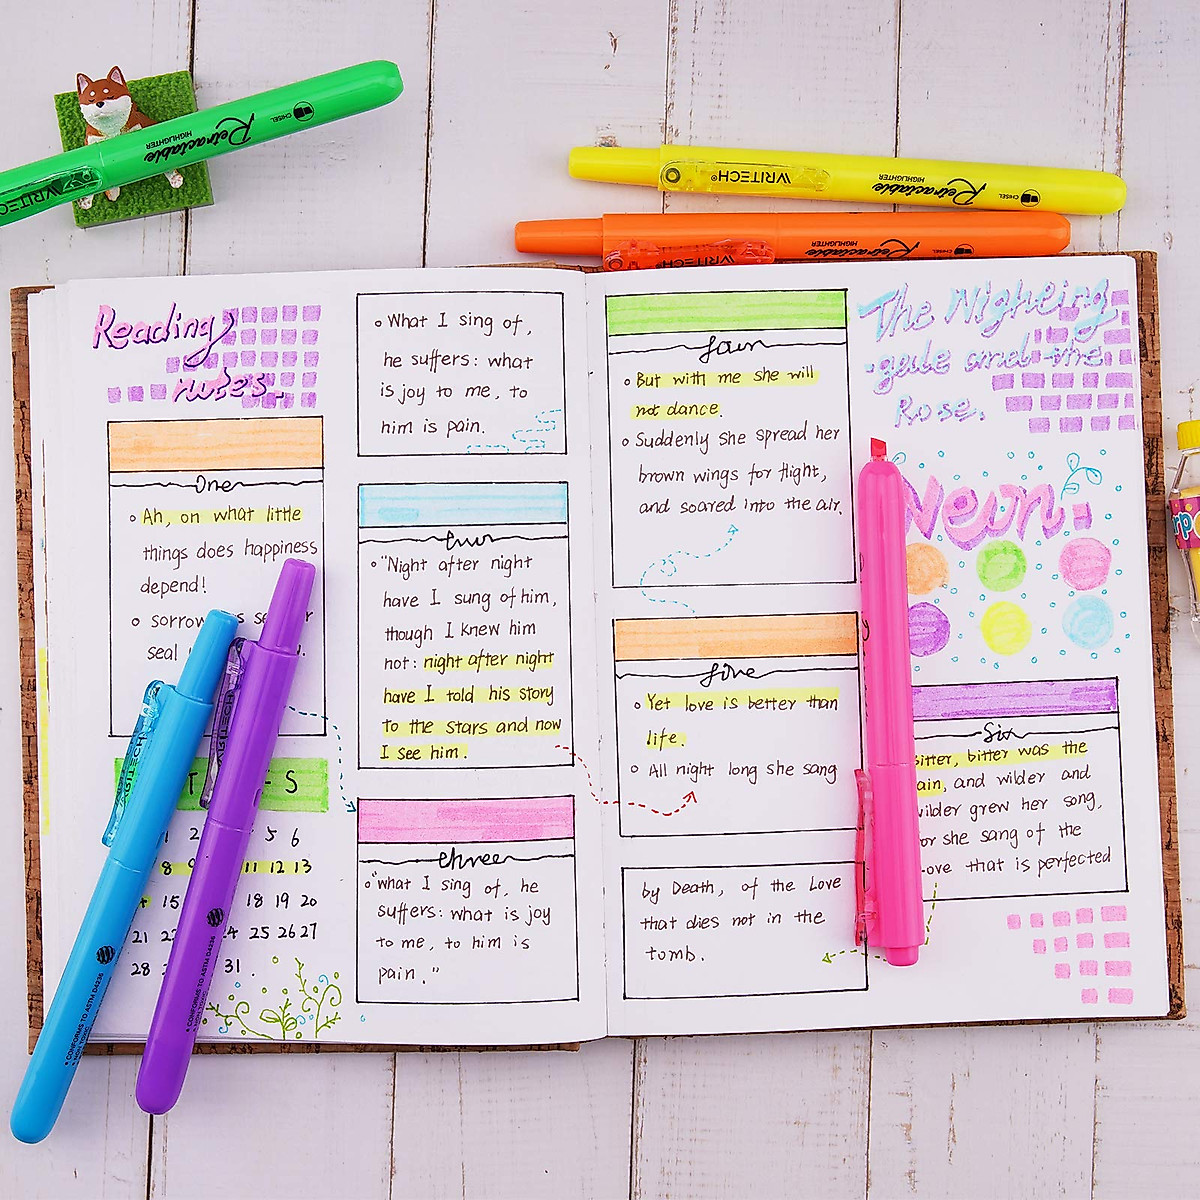 Retractable
HIGHLIGHTER
CHISEL
WRITECH
WRITECH®
Retractable
HIGHLIGHTER
CHISEL
WRITECH®
Retractable
HIGHLIGHTER
CHISEL
Reading
nutes.
One
Ah, on what little
things does happiness
depend!
sorrow
seal
T S
1 2 5 6
8 9 11 12 13
15 18 19 20
21 24 25 26 27
28 31.
What I sing of,
he suffers: what
is joy to me, to
him is pain.
"Night after night
have I sung of him,
though I knew him
not: night after night
have I told his story
to the stars and now
I see him.
three
"what I sing of, he
suffers: what is joy
to me, to him is
pain."
But with me she will
not dance.
Suddenly she spread her
brown wings for flight,
and soared into the air.
five
Yet love is better than
life.
All night long she sang
by Death, of the Love
that dies not in the
tomb.
The Nigheing
-gede and the
Rose.
Neon.
Six
Bitter, bitter was the
ain, and wilder and
wilder grew her song,
for she sang of the
Love that is perfected
WRITECH
WRITECH
CONFORMS TO ASTM D4236
NON TOXIC
CONFORMS TO ASTM D4236
NON TOXIC